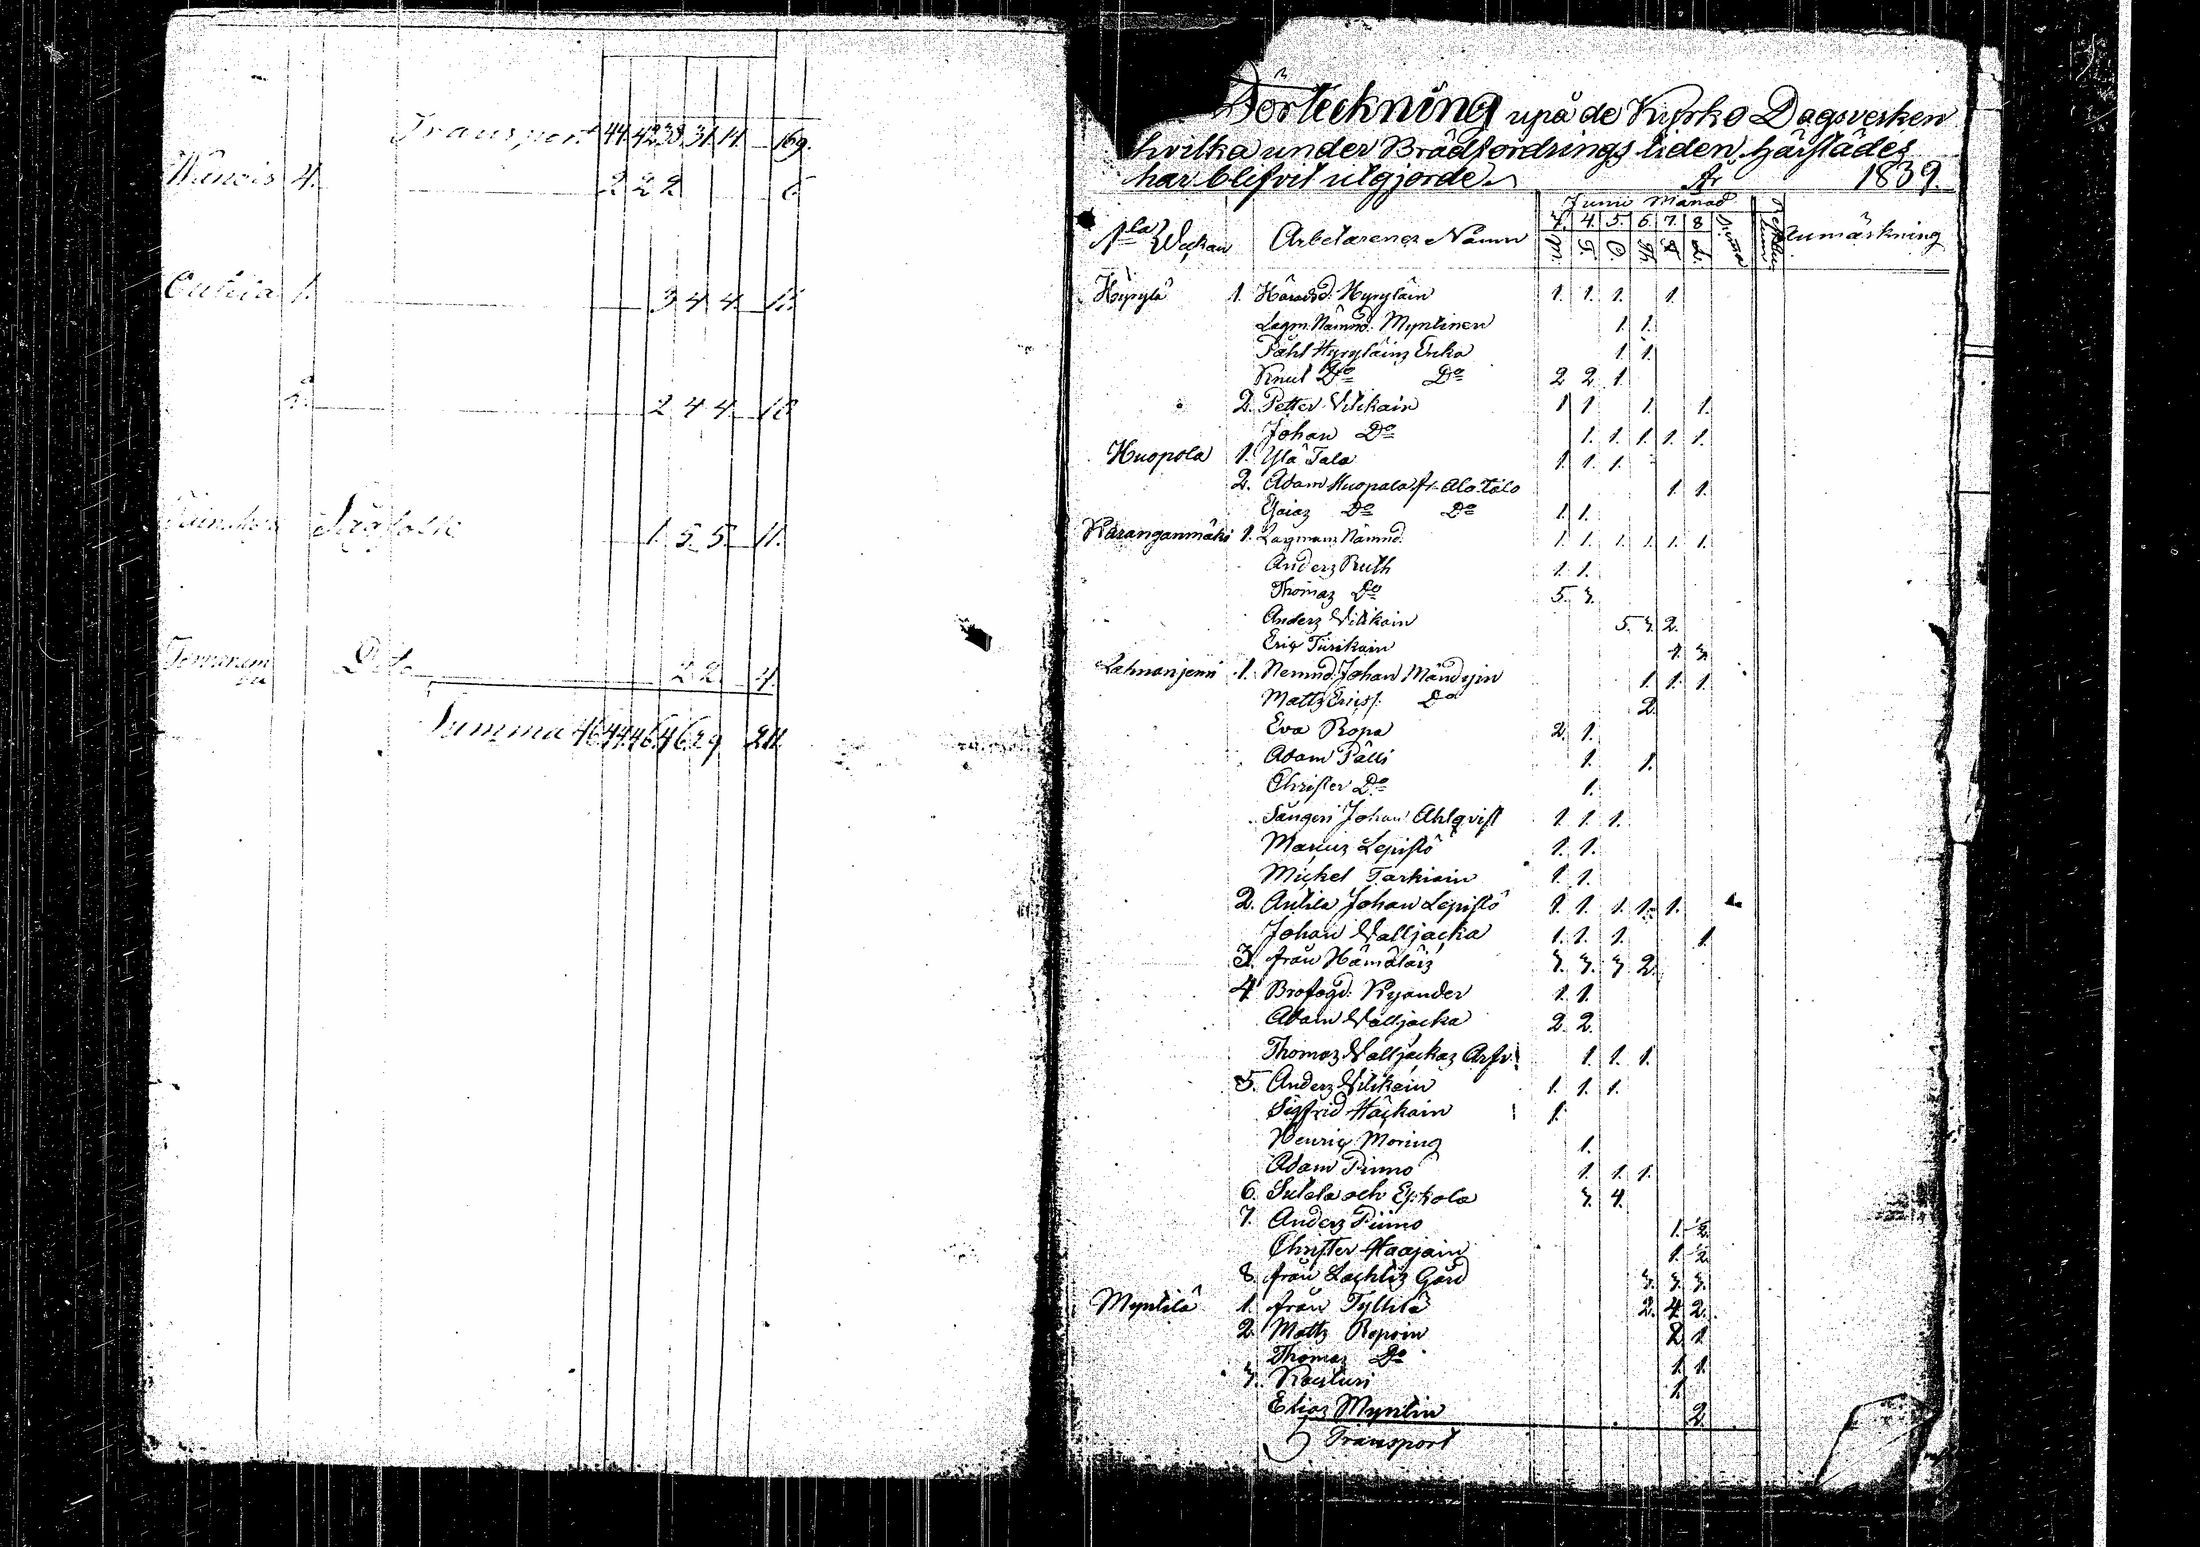 Transport 44. 42. 38. 31. 14. 169.
4. 2 2 2 6
1. 3 4 4. 11.
2. 2 4 4. 10
1. 5. 5. 11.
Dito 2 2. 4.
Summa 46. 44. 46. 46. 29 211.
Förteckning upå de Kyrko Dagsverken
hvilka under Brädfordrings tiden härstädes
har blifvit utgjorde. År 1839.
Juni Månad
3. 4. 5. 6. 7. 8. Summa
Arbetarenes Namn M. T. O. Th. F. L. Anmärkning
Hyrylä 1. Häradsd. Hyryläin 1. 1. 1. 1.
Lagm. Nämnd. Myntinen 1. 1.
Påhl Hyryläins Enka 1. 1.
Knut Do Do 2 2 1.
2. Petter Vilikain 1 1 1. 1.
Johan Do 1. 1. 1. 1. 1.
Huopola 1. Ylä Talo 1. 1. 1.
2. Adam Huopala fr. Ala Talo 1. 1.
Esaias Do Do 1. 1.
Karanganmäki 1. Lagmans Nämnd. 1. 1. 1. 1. 1. 1.
Anders Ruth 1. 1.
Thomas Do 5. 3.
Anders Vilikain 5. 3. 2.
Eric Turikain 1. 3.
1. Nemnd. Johan Mändyin 1. 1. 1.
Matts Ericss. Do 2.
Eva Ropa 2. 1.
Adam Pälli 1. 1.
Christer Do 1.
Johan Ahlqvist 1. 1. 1.
Marcus Lepistö 1. 1.
Mickel Tarkiain 1. 1.
2. Antila Johan Lepistö 1. 1. 1. 1. 1.
Johan Valljacka 1. 1. 1. 1
3. från Hämäläis 3. 3. 3. 2.
4 Brofogd. Kyander 1. 1.
Adam Valljacka 2 2.
Thomas Valljackas Arfv. 1. 1. 1.
5. Anders Vilikain 1. 1. 1.
Sigfrid Häckain 1.
Henric Moring 1.
Adam Pinno 1. 1. 1.
6. Sutela och Eskola 3. 4.
7. Anders Piimo 1. 2.
Christer Haajain 1. 2
8. från Lachtis Gård 3. 3. 3.
Myntilä 1. från Tyllilä 2. 4 2.
2. Matts Ropoin 2 1.
Thomas Do 1. 1.
3. 1.
Elias Myntin 2.
Transport